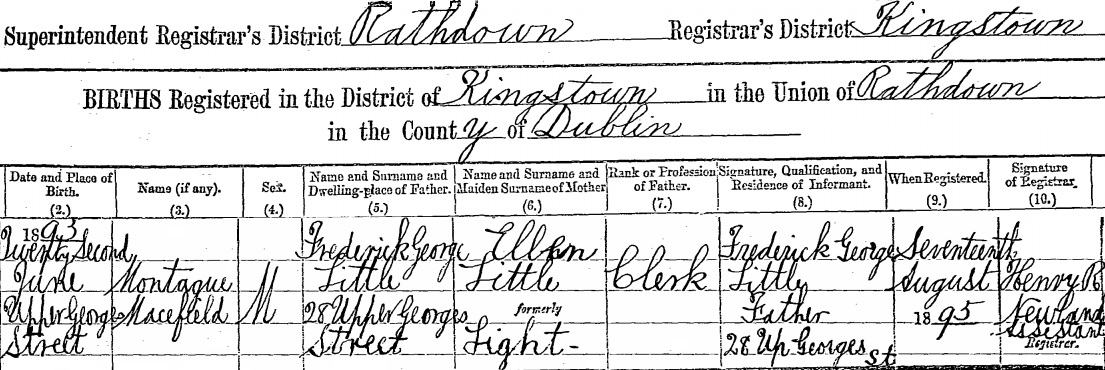 Superintendent Registrar's District Rathdown Registrar's District Kingstown
BIRTHS Registered in the District of Kingstown in the Union of Rathdown
in the County of Dublin
Date and Place of Birth. (2.) Name (if any). (3.) Sex. (4.) Name and Surname and Dwelling-place of Father. (5.) Name and Surname and Maiden Surname of Mother (6.) Rank or Profession of Father. (7.) Signature, Qualification, and Residence of Informant. (8.) When Registered. (9.) Signature of Registrar. (10.)
1895
Twenty Second Frederick George Ellen Frederick George Seventeenth
June Montague M Little Little Clerk Little August Henry B
Upper George Macefield 28 Upper Georges formerly Father 1895 Newland
Street Street Light- 28 Up Georges St Assistant
Registrar.